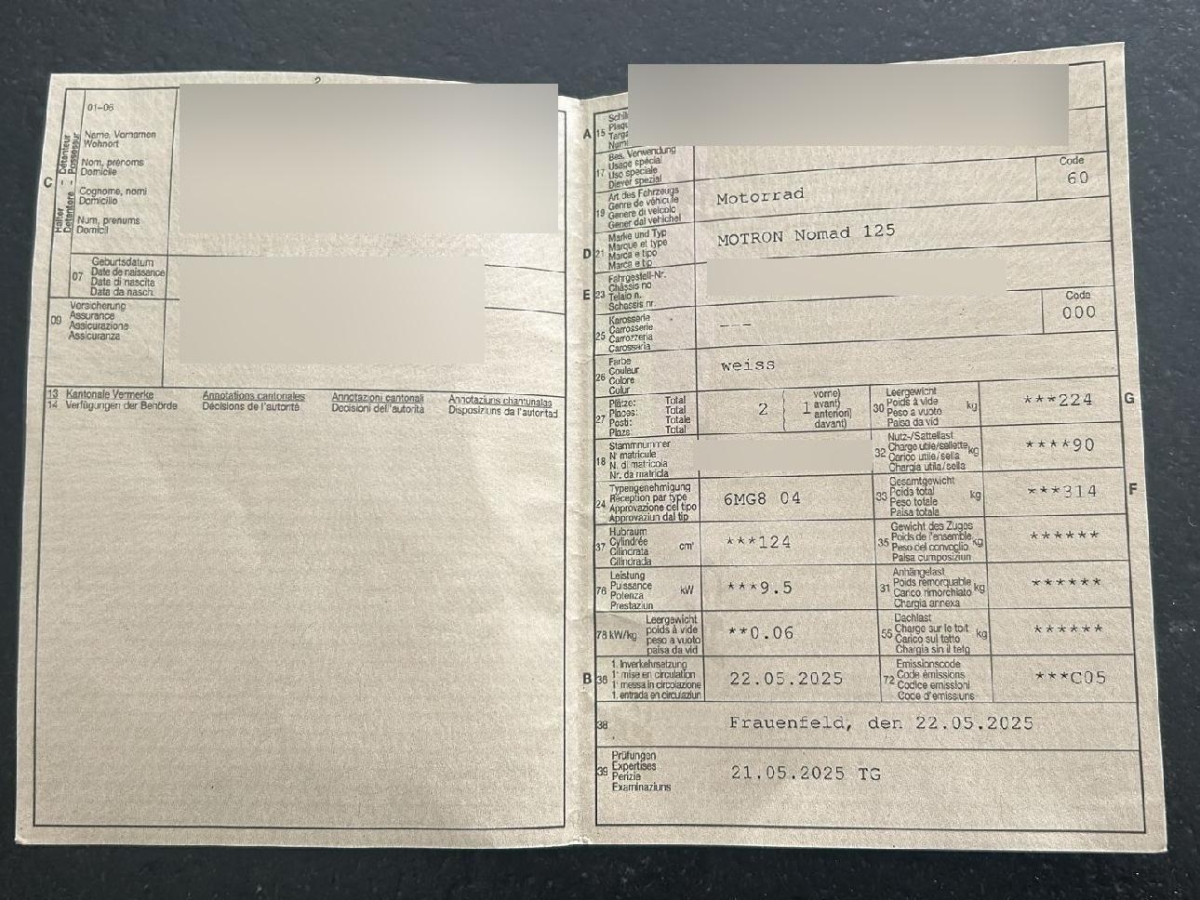 2
C
Halter Détenteur
Detentore Possessur
01-06
Name, Vornamen
Wohnort
Nom, prénoms
Domicile
Cognome, nomi
Domicilio
Num, prenums
Domicil
07
Geburtsdatum
Date de naissance
Data di nascita
Data da nasch.
09
Versicherung
Assurance
Assicurazione
Assicuranza
13 Kantonale Vermerke Annotations cantonales Annotazioni cantonali Annotaziuns chantunalas
14 Verfügungen der Behörde Décisions de l'autorité Decisioni dell'autorità Disposiziuns da l'autoritad
A 15
17
Bes. Verwendung
Usage spécial
Uso speciale
Diever spezial
19
Art des Fahrzeugs
Genre de véhicule
Genere di veicolo
Gener dal vehichel
Motorrad
Code
60
D 21
Marke und Typ
Marque et type
Marca e tipo
Marca e tip
MOTRON Nomad 125
E 23
Fahrgestell-Nr.
Châssis no
Telaio n.
Schassis nr.
25
Karosserie
Carrosserie
Carrozzeria
Carossaria
---
Code
000
26
Farbe
Couleur
Colore
Colur
weiss
27
Plätze: Total
Places: Total
Posti: Totale
Plazs: Total
2 { 1 vorne)
avant)
anteriori)
davant)
30
Leergewicht
Poids à vide
Peso a vuoto
Paisa da vid
kg
***224
G
18
Stammnummer
N° matricule
N. di matricola
Nr. da matricla
32
Nutz-/Sattellast
Charge utile/sellette
Carico utile/sella
Chargia utila/sella
kg
****90
24
Typengenehmigung
Réception par type
Approvazione del tipo
Approvaziun dal tip
6MG8 04
33
Gesamtgewicht
Poids total
Peso totale
Paisa totala
kg
***314
F
37
Hubraum
Cylindrée
Cilindrata
Cilindrada
cm³
***124
35
Gewicht des Zuges
Poids de l'ensemble
Peso del convoglio
Paisa cumposiziun
kg
******
76
Leistung
Puissance
Potenza
Prestaziun
kW
***9.5
31
Anhängelast
Poids remorquable
Carico rimorchiato
Chargia annexa
kg
******
78 kW/kg
Leergewicht
poids à vide
peso a vuoto
paisa da vid
**0.06
55
Dachlast
Charge sur le toit
Carico sul tetto
Chargia sin il tetg
kg
******
B 36
1. Inverkehrsetzung
1ʳᵉ mise en circulation
1ª messa in circolazione
1. entrada en circulaziun
22.05.2025
72
Emissionscode
Code émissions
Codice emissioni
Code d'emissiuns
***C05
38
Frauenfeld, den 22.05.2025
39
Prüfungen
Expertises
Perizia
Examinaziuns
21.05.2025 TG